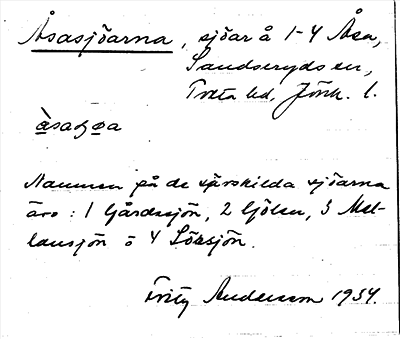 Åsasjöarna, sjöar å 1-4 Åsa,
Sandseryds sn,
Tveta hd, Jönk. l.
Namnen på de särskilda sjöarna
äro: 1 Gårdssjön, 2 Gölen, 3 Mel-
lansjön o 4 Lövsjön.
Fritz Anderson 1934.